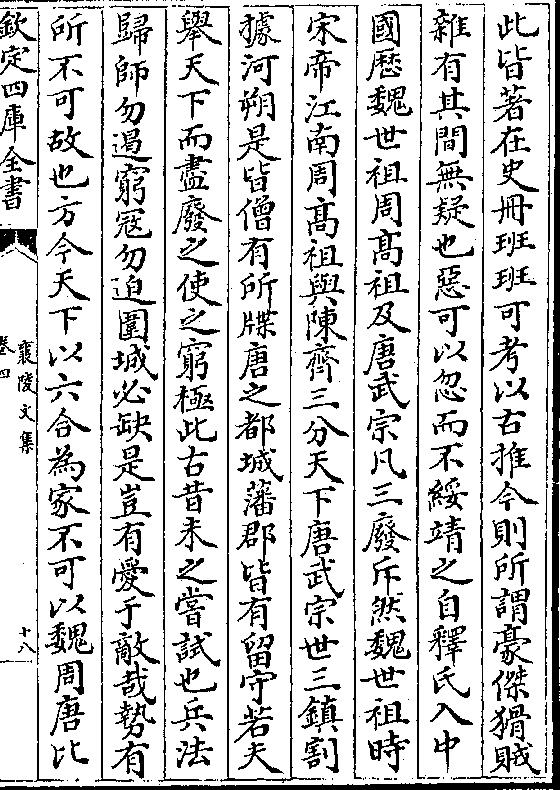 此皆著在史冊班班可考以古推今則所謂豪傑猾賊
雜有其間無疑也惡可以忽而不綏靖之自釋氏入中
國歴魏世祖周髙祖及唐武宗凡三廢斥然魏世祖時
宋帝江南周髙祖與陳齊三分天下唐武宗世三鎮割
據河朔是皆僧有所牒唐之都城藩郡皆有留守若夫
舉天下而盡廢之使之窮極此古昔未之嘗試也兵法
歸師勿遏窮寇勿迫圍城必缺是豈有愛于敵哉勢有
所不可故也方今天下以六合為家不可以魏周唐比
欽定四庫全書
襄陵文集
卷四
十八